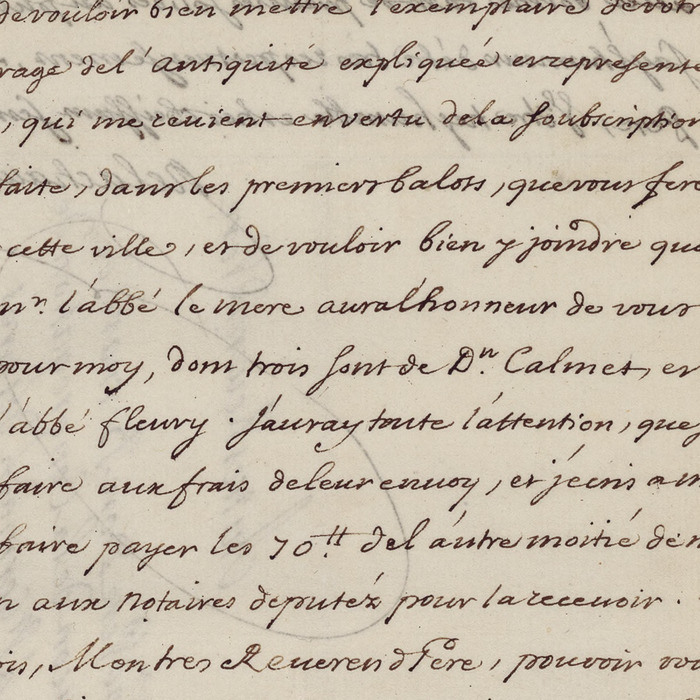 de vouloir bien mettre l'exemplaire de votr
rage de l'antiquité expliqueé et represente
, qui me revient en vertu de la soubscription
faite, dans les premiers balots, que vous fere
cette ville, et de vouloir bien y joindre que
mr. l'abbé le mere aura l'honneur de vous
pour moy, dont trois sont de Dn. Calmet, et
l'abbé fleury. J'auray toute l'attention, que
faire aux frais de leur envoy, et j'écris a m
faire payer les 70tt de l'autre moitié de m
n aux Notaires deputéz pour la recevoir.
ois, Mon tres Reverend Pere, pouvoir vo